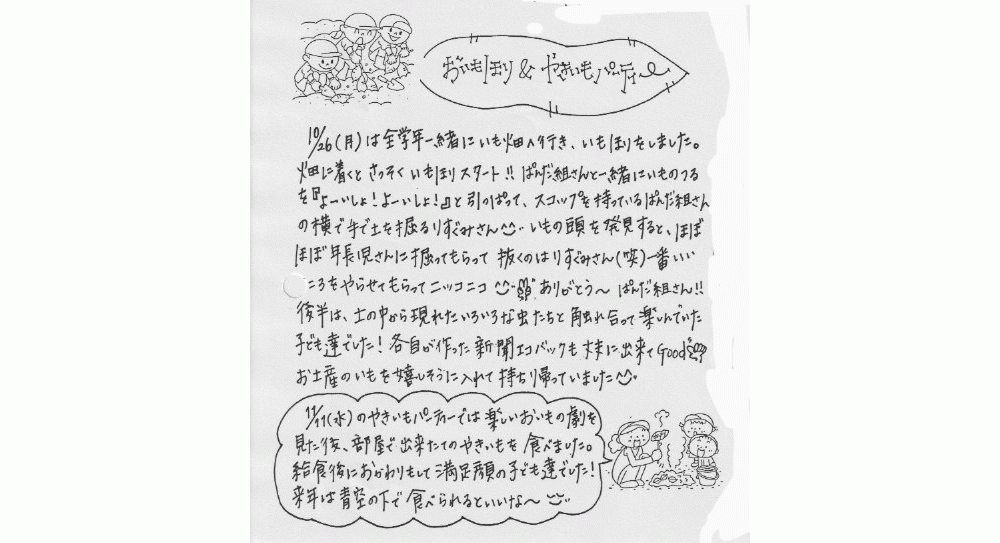 おいもほり & やきいもパーティー
10/26(月)は全学年一緒にいも畑へ行き、いもほりをしました。
畑に着くとさっそくいもほりスタート!! ぱんだ組さんと一緒にいものつる
を『よーいしょ!よーいしょ!』と引っぱって、スコップを持っているぱんだ組さん
の横で手で土を掘るりすぐみさん いもの頭を発見すると、ほぼ
ほぼ年長児さんに掘ってもらって 抜くのはりすぐみさん(笑)一番いい
ころをやらせてもらってニッコニコ ありがとう〜 ぱんだ組さん!!
後半は、土の中から現れたいろいろな虫たちと触れ合って楽しんでいた
子ども達でした! 各自が作った新聞エコバックも丈夫に出来てGood
お土産のいもを嬉しそうに入れて持ち帰っていました
11/11(水)のやきいもパーティーでは楽しいおいもの劇を
見た後、部屋で出来たてのやきいもを食べました。
給食後におかわりもして満足顔の子ども達でした!
来年は青空の下で食べられるといいな〜